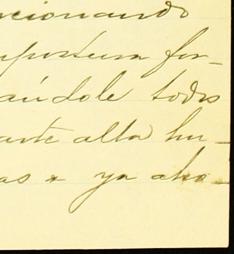 ncionando
postura for-
ándole todos
arte alta hu-
as u ya aho-